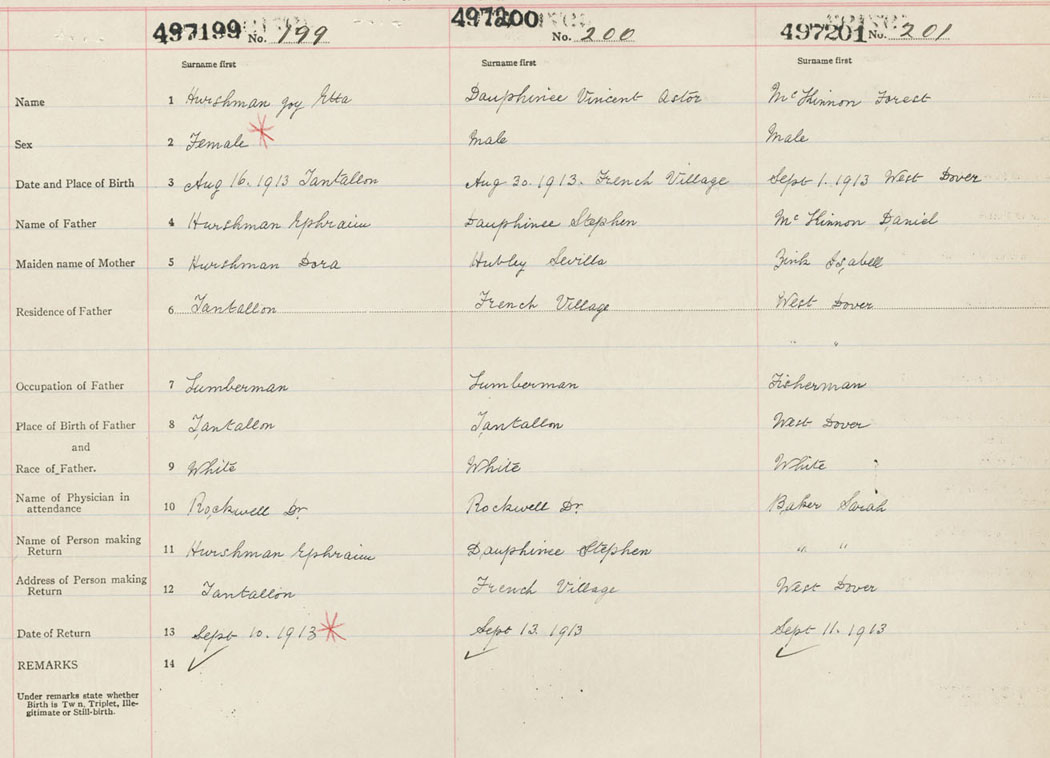 497199 No. 199 497200 No. 200 497201 No. 201
Surname first Surname first Surname first
Name 1 Hurshman Joy Etta Dauphinee Vincent Astor McKinnon Forest
Sex 2 Female Male Male
Date and Place of Birth 3 Aug 16. 1913 Tantallon Aug 30. 1913. French Village Sept 1. 1913 West Dover
Name of Father 4 Hurshman Ephraim Dauphinee Stephen McKinnon Daniel
Maiden name of Mother 5 Hurshman Dora Hubley Sevilla Zink Isabell
Residence of Father 6 Tantallon French Village West Dover
" "
Occupation of Father 7 Lumberman Lumberman Fisherman
Place of Birth of Father 8 Tantallon Tantallon West Dover
and
Race of Father. 9 White White White
Name of Physician in
attendance 10 Rockwell Dr. Rockwell Dr. Baker Sarah
Name of Person making
Return 11 Hurshman Ephraim Dauphinee Stephen " "
Address of Person making
Return 12 Tantallon French Village West Dover
Date of Return 13 Sept 10. 1913 Sept 13. 1913 Sept 11. 1913
REMARKS 14 ✓ ✓ ✓
Under remarks state whether
Birth is Tw n, Triplet, Ille-
gitimate or Still-birth.